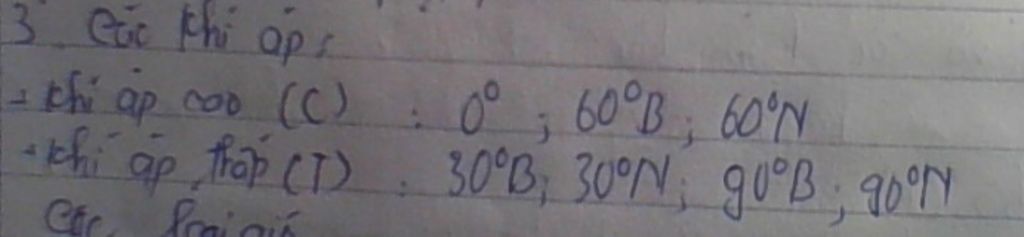 3. Các khí áp:
- khí áp cao (C) : 0°; 60°B; 60°N
- khí áp thấp (T) : 30°B; 30°N; 90°B; 90°N
Các loại gió